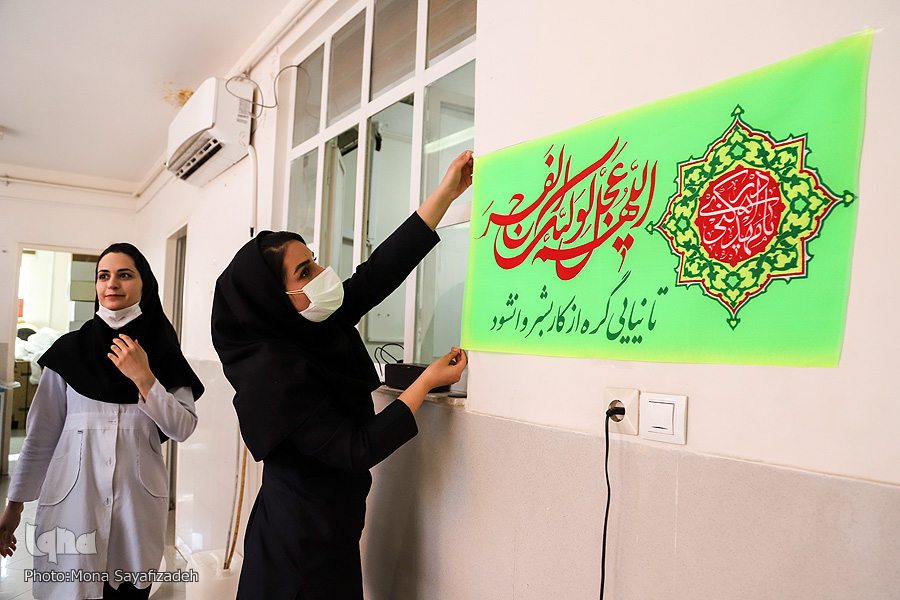 اللهم عجل لولیک الفرج
تا نیایی گره از کار بشر وا نشود
iqna
Photo:Mona Sayafizadeh